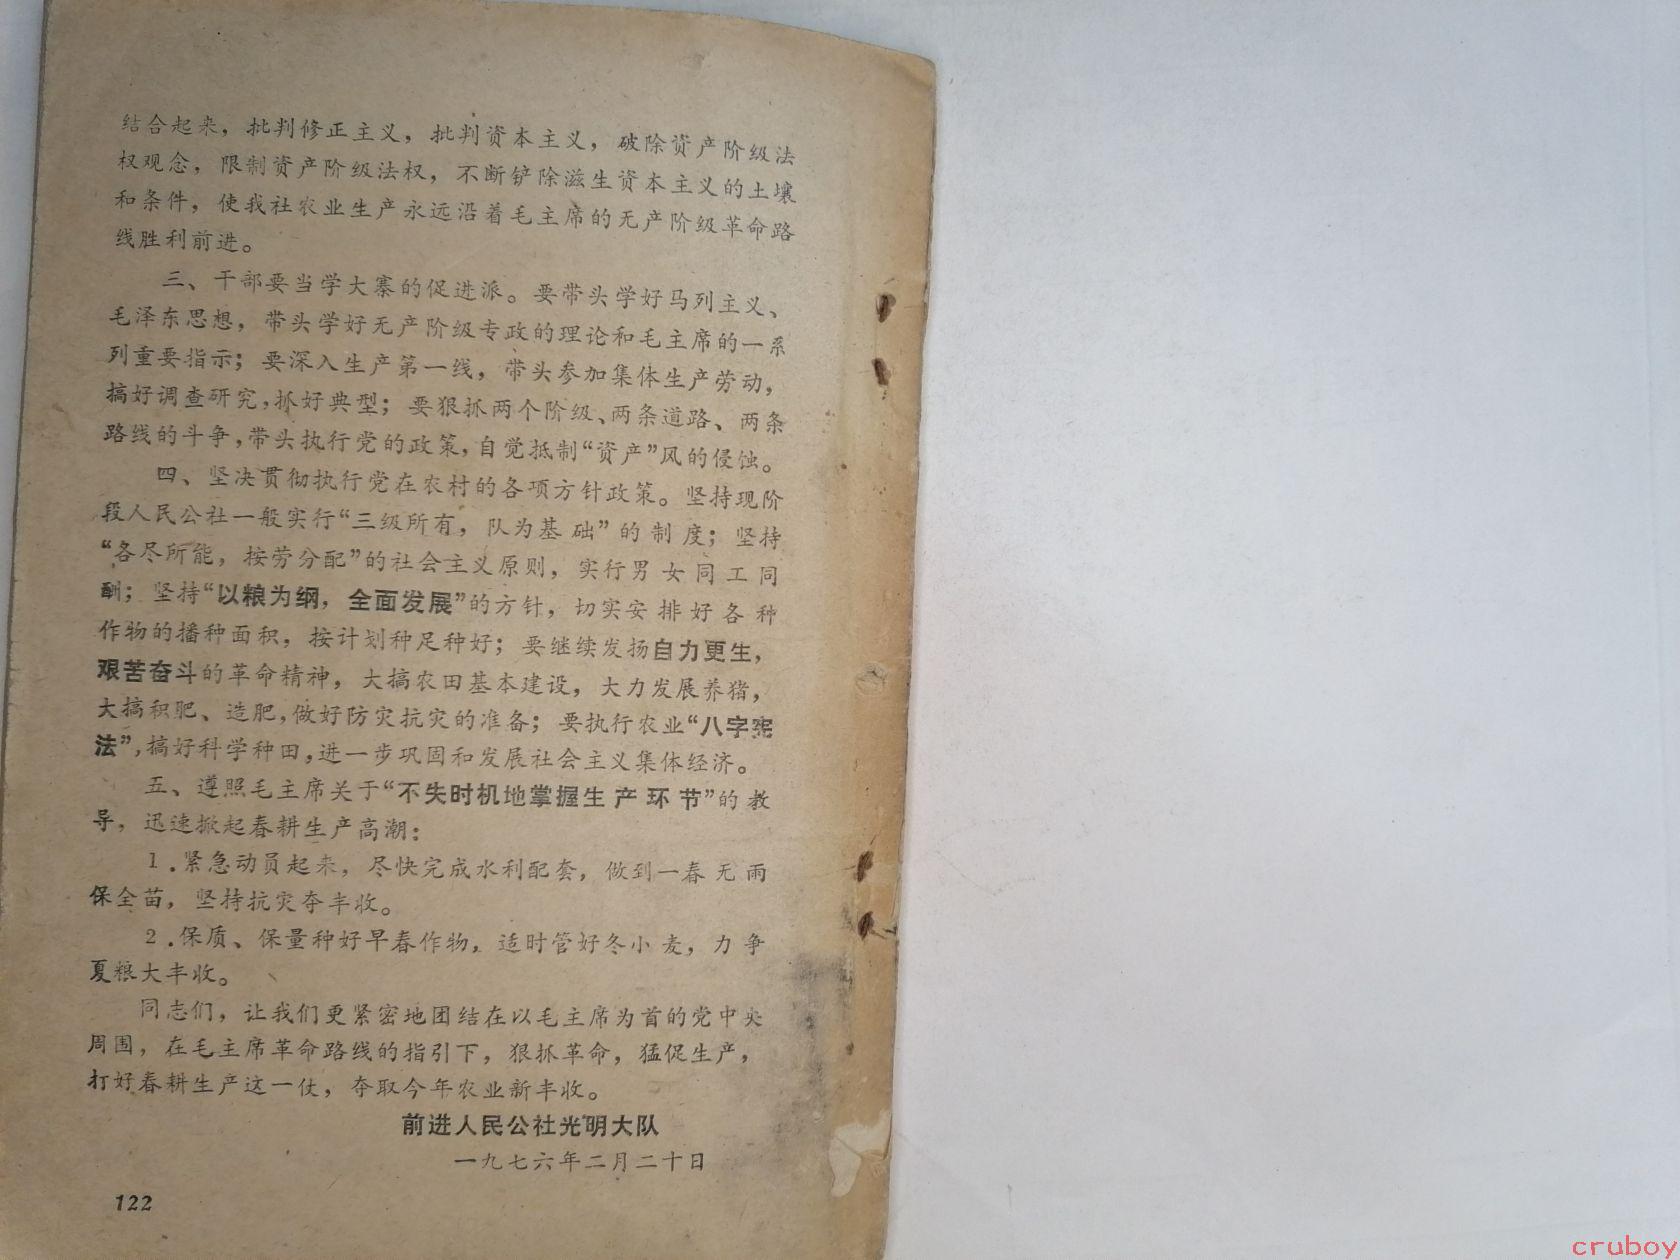 结合起来，批判修正主义，批判资本主义，破除资产阶级法
权观念，限制资产阶级法权，不断铲除滋生资本主义的土壤
和条件，使我社农业生产永远沿着毛主席的无产阶级革命路
线胜利前进。
三、干部要当学大寨的促进派。要带头学好马列主义、
毛泽东思想，带头学好无产阶级专政的理论和毛主席的一系
列重要指示；要深入生产第一线，带头参加集体生产劳动，
搞好调查研究，抓好典型；要狠抓两个阶级、两条道路、两条
路线的斗争，带头执行党的政策，自觉抵制“资产”风的侵蚀。
四、坚决贯彻执行党在农村的各项方针政策。坚持现阶
段人民公社一般实行“三级所有，队为基础”的制度；坚持
“各尽所能，按劳分配”的社会主义原则，实行男女同工同
酬；坚持“以粮为纲，全面发展”的方针，切实安排好各种
作物的播种面积，按计划种足种好；要继续发扬自力更生，
艰苦奋斗的革命精神，大搞农田基本建设，大力发展养猪，
大搞积肥、造肥，做好防灾抗灾的准备；要执行农业“八字宪
法”，搞好科学种田，进一步巩固和发展社会主义集体经济。
五、遵照毛主席关于“不失时机地掌握生产环节”的教
导，迅速掀起春耕生产高潮：
1.紧急动员起来，尽快完成水利配套，做到一春无雨
保全苗，坚持抗灾夺丰收。
2.保质、保量种好早春作物，适时管好冬小麦，力争
夏粮大丰收。
同志们，让我们更紧密地团结在以毛主席为首的党中央
周围，在毛主席革命路线的指引下，狠抓革命，猛促生产，
打好春耕生产这一仗，夺取今年农业新丰收。
前进人民公社光明大队
一九七六年二月二十日
122
cruboy